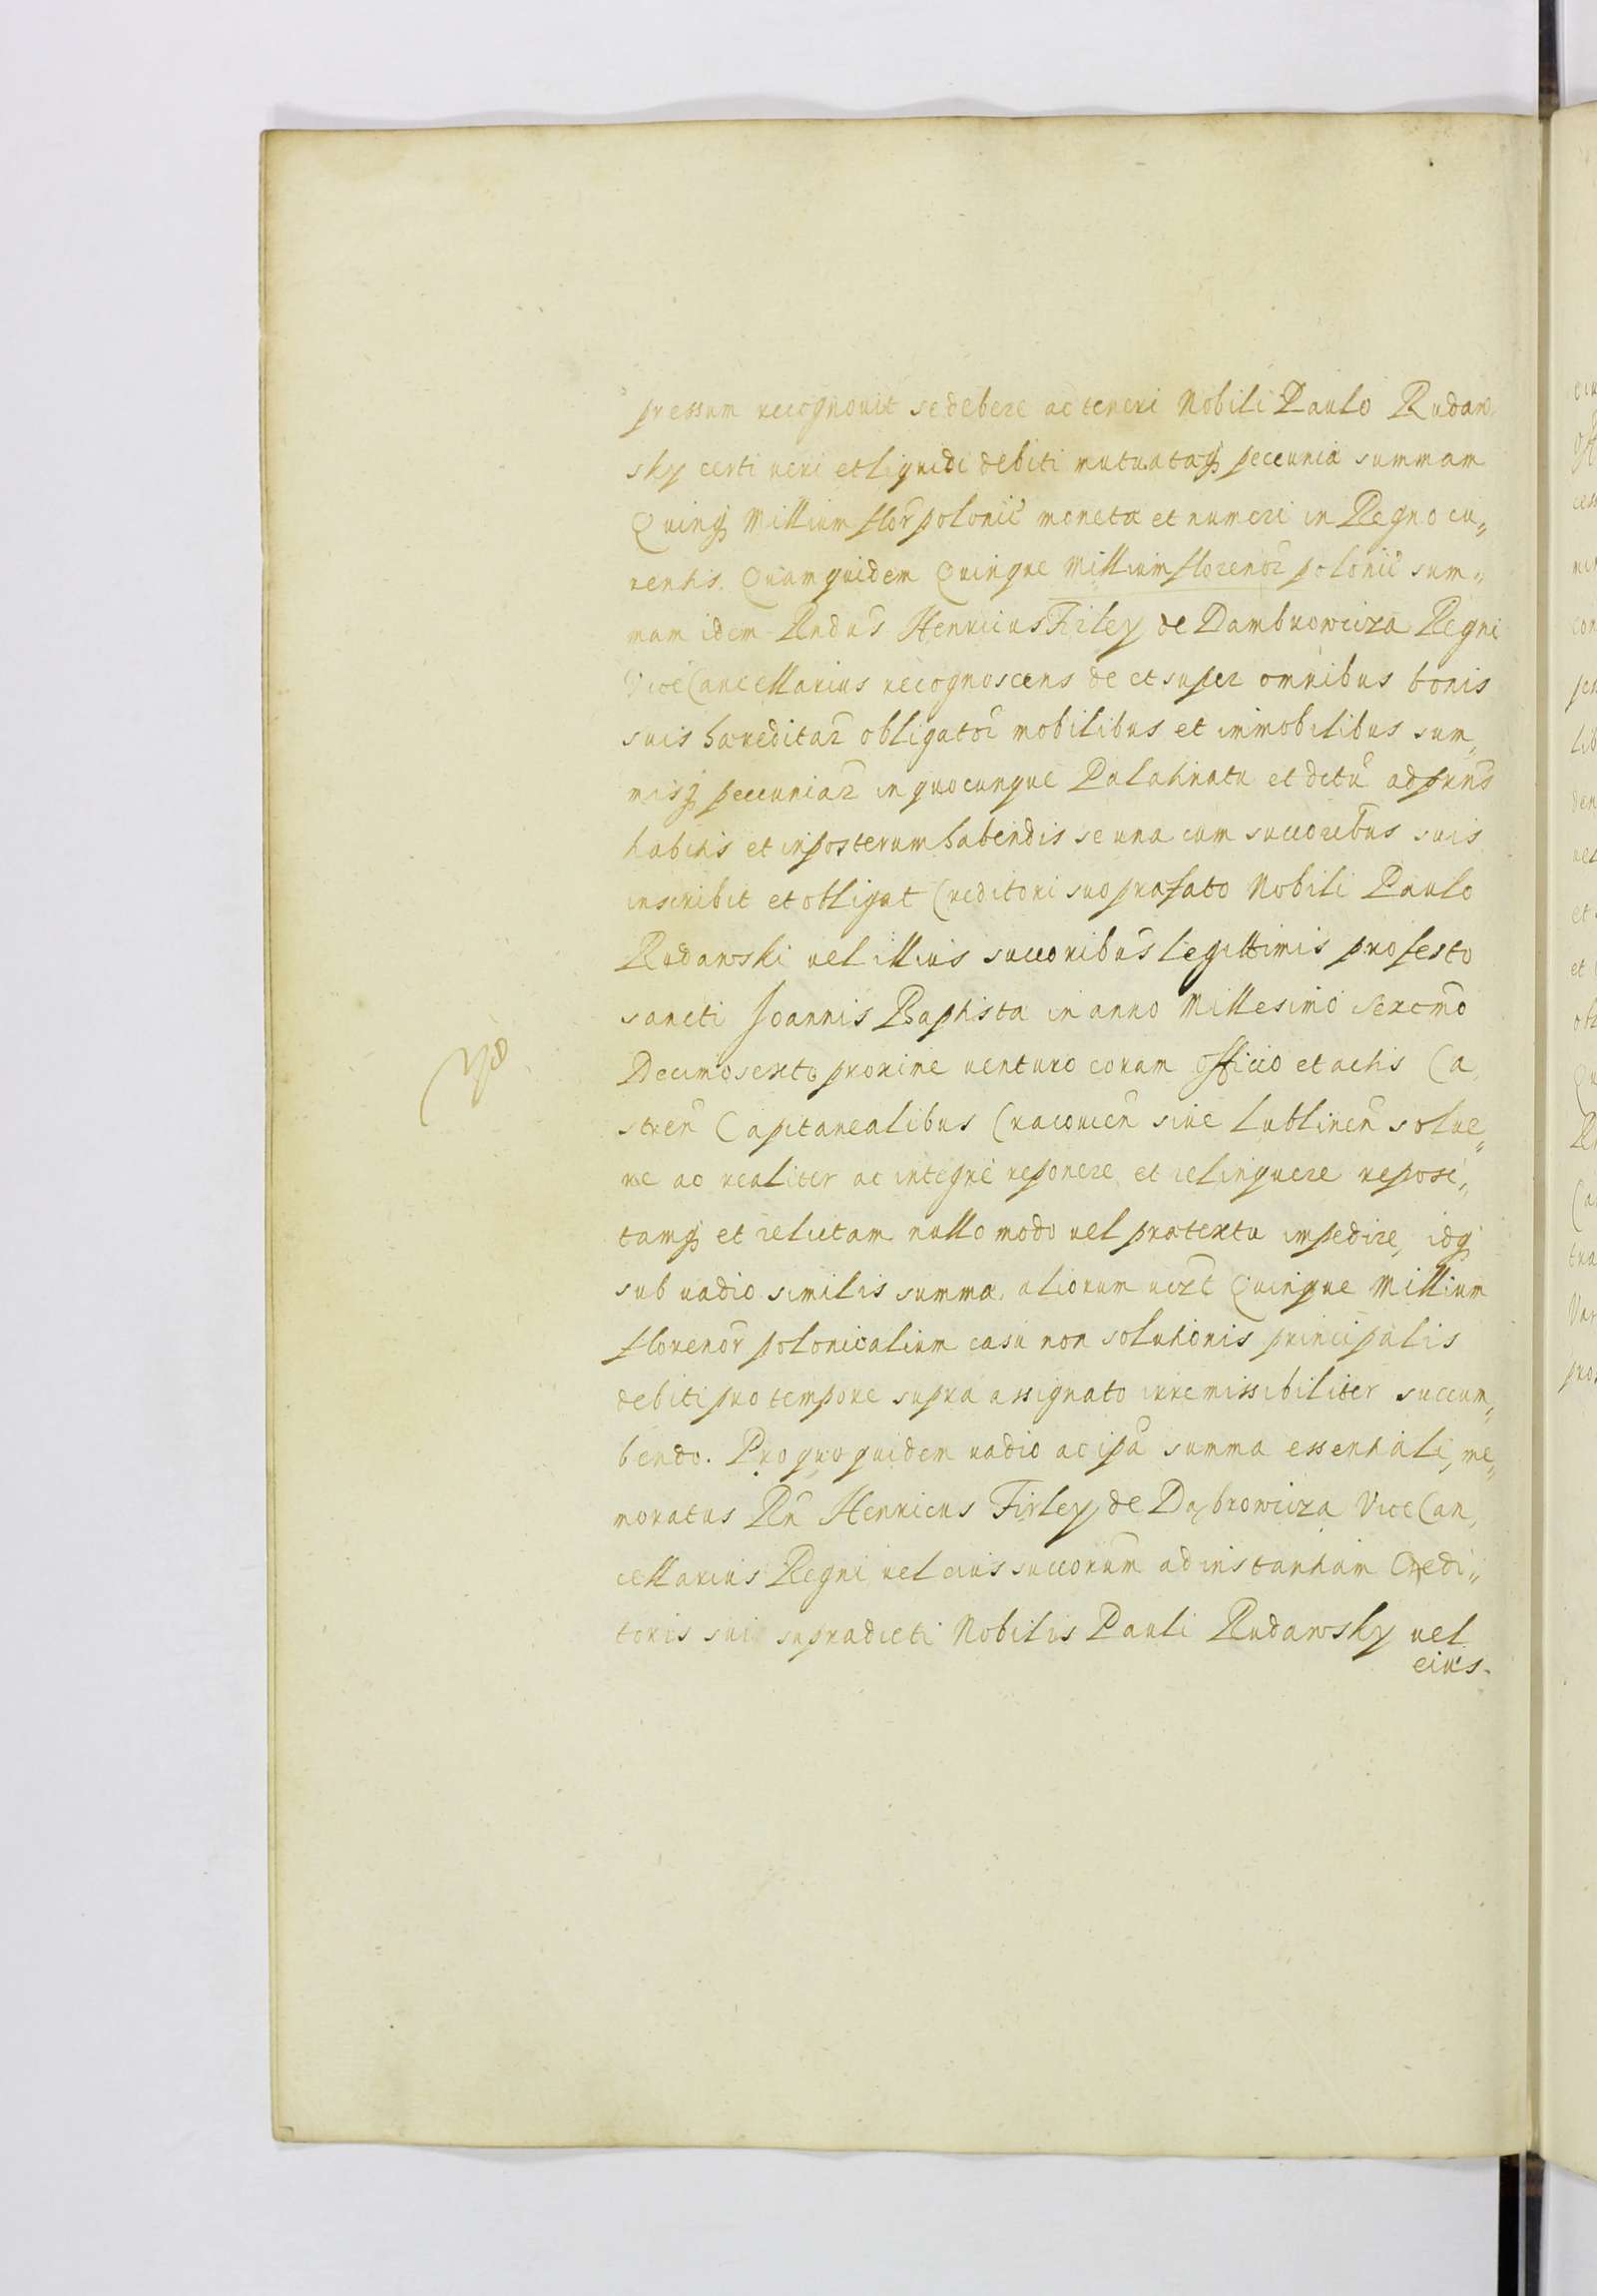 pressum recognouit se debere ac teneri Nobili Paulo Rudaw,
sky certi ueri et liquidi debiti mutuatаq₃ peccuniæ summam
Quinq₃ Millium flor̃ polonic̃ moneta et numeri in Regno cu„
rentis. Quam quidem Quinque Millium florenor̃ polonic̃ sum„
mam idem Rndus̃ Henricus Firley de Dambrowicza Regni
ViceCancellarius recognoscens de et super omnibus bonis
suis hæreditar̃ obligator̃ mobilibus et immobilibus sum„
misq₃ peccuniar̃ in quocunque Palatinatu et dctũ ad prñs
habitis et inposterum habendis se una cum succoribus̃ suis
inscribit et obligat Creditori suo præfato Nobili Paulo
Rudawski uel illius succoribus̃ legittimis pro festo
sancti Joannis Baptista in anno Millesimo Sexcmõ
Decimosexto proxime uenturo coram Officio et actis Ca,
stren̄ Capitanealibus Cracouien̄ siue Lublinen̄ solue„
re ac realiter ac integrè reponere et relinquere reposi„
tamq₃ et relictam nullo modo uel prætextu impedire, idq₃
sub uadio similis summæ aliorum uizt̃ Quinque Millium
florenor̃ polonicalium casu non solutionis principalis
debiti pro tempore supra assignato irremissibiliter succum„
bendo. Pro quo quidem uadio ac ipã summa essentiali, me„
moratus Rñ Henricus Firley de Dąbrowicza ViceCan,
cellarius Regni uel eius succorum̃ ad instantiam Credi„
toris sui supradicti Nobilis Pauli Rudawsky uel
eius.